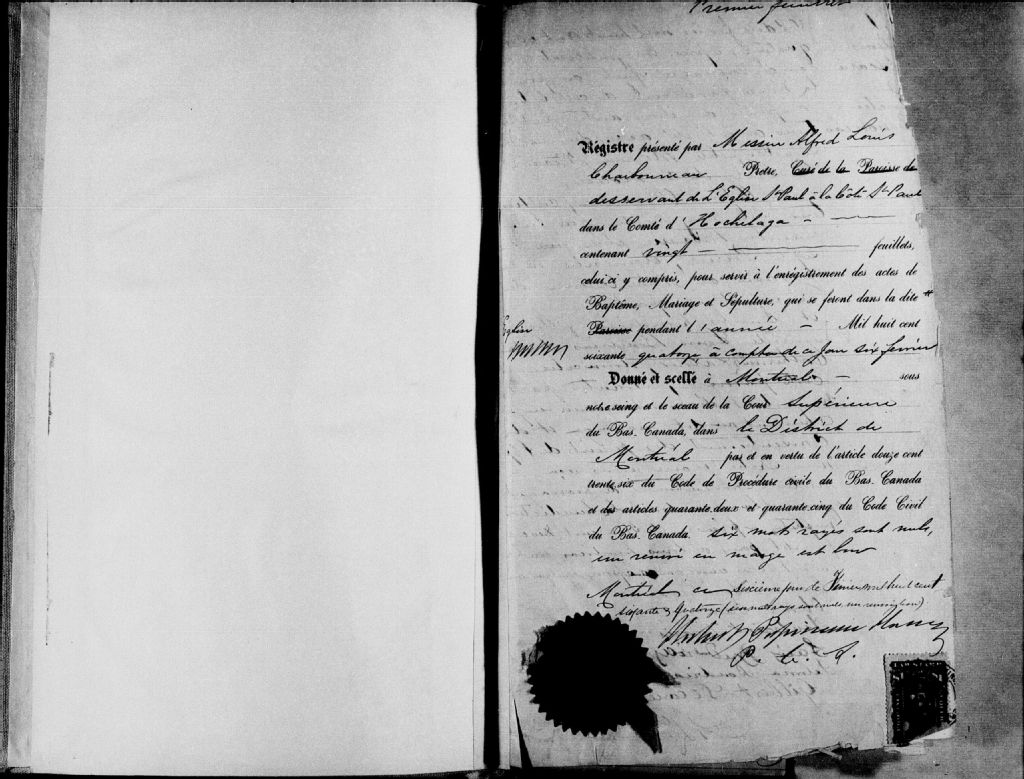 Premier feuillet
Régistre présenté par Messire Alfred Louis
Charbonneau Prêtre, Curé de la Paroisse de
desservant de L'Eglise St Paul à la Côte St Paul
dans le Comté d'Hochelaga —
contenant vingt — feuillets,
celui-ci y compris, pour servir à l'enrégistrement des actes de
Baptême, Mariage et Sépulture, qui se feront dans la dite
Eglise
Paroisse pendant l'année — Mil huit cent
soixante quatorze à compter de ce jour six fevrier
Donné et scellé à Montréal — sous
notre seing et le sceau de la Cour Supérieure
du Bas-Canada, dans le District de
Montréal par et en vertu de l'article douze cent
trente-six du Code de Procédure civile du Bas-Canada
et des articles quarante-deux et quarante-cinq du Code Civil
du Bas-Canada. six mots rayés sont nuls,
un renvoi en marge est bon
Montréal ce Sixième jour de Février mil huit cent
Septante & Quatorze (six mots rayés sont nuls, un renvoi bon)
Papineau
LAW STAMP